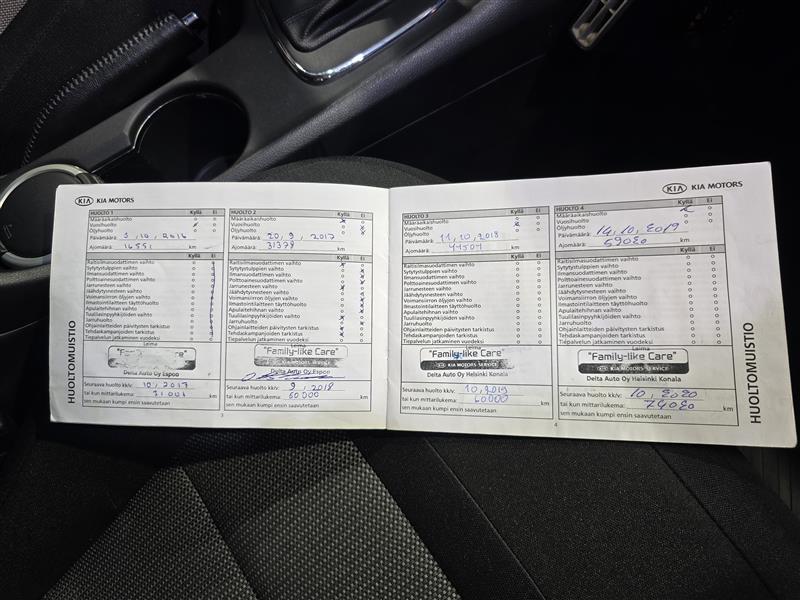 KIA KIA MOTORS
HUOLTO 1 Kyllä Ei
Määräaikaishuolto
Vuosihuolto
Öljyhuolto
Päivämäärä: 3, 10, 2016
Ajomäärä: 16551 km
Kyllä Ei
Raitisilmasuodattimen vaihto
Sytytystulppien vaihto
Ilmansuodattimen vaihto
Polttoainesuodattimen vaihto
Jarrunesteen vaihto
Jäähdytysnesteen vaihto
Voimansiirron öljyjen vaihto
Ilmastointilaitteen täyttöhuolto
Apulaitehihnan vaihto
Tuulilasinpyyhkijöiden vaihto
Jarruhuolto
Ohjainlaitteiden päivitysten tarkistus
Tehdaskampanjoiden tarkistus
Tiepalvelun jatkaminen vuodeksi
Leima
"Family-like Care"
Delta Auto Oy Espoo
Seuraava huolto kk/v: 10, 2017
tai kun mittarilukema: km
sen mukaan kumpi ensin saavutetaan
HUOLTO 2 Kyllä Ei
Määräaikaishuolto
Vuosihuolto
Öljyhuolto
Päivämäärä: 20, 9, 2017
Ajomäärä: 31379 km
Kyllä Ei
Raitisilmasuodattimen vaihto
Sytytystulppien vaihto
Ilmansuodattimen vaihto
Polttoainesuodattimen vaihto
Jarrunesteen vaihto
Jäähdytysnesteen vaihto
Voimansiirron öljyjen vaihto
Ilmastointilaitteen täyttöhuolto
Apulaitehihnan vaihto
Tuulilasinpyyhkijöiden vaihto
Jarruhuolto
Ohjainlaitteiden päivitysten tarkistus
Tehdaskampanjoiden tarkistus
Tiepalvelun jatkaminen vuodeksi
Leima
"Family-like Care"
KIA MOTORS SERVICE
Delta Auto Oy Espoo
Seuraava huolto kk/v: 9, 2018
tai kun mittarilukema: 60000 km
sen mukaan kumpi ensin saavutetaan
3
HUOLTOMUISTIO
KIA KIA MOTORS
HUOLTO 3 Kyllä Ei
Määräaikaishuolto
Vuosihuolto
Öljyhuolto
Päivämäärä: 11, 10, 2018
Ajomäärä: km
Kyllä Ei
Raitisilmasuodattimen vaihto
Sytytystulppien vaihto
Ilmansuodattimen vaihto
Polttoainesuodattimen vaihto
Jarrunesteen vaihto
Jäähdytysnesteen vaihto
Voimansiirron öljyjen vaihto
Ilmastointilaitteen täyttöhuolto
Apulaitehihnan vaihto
Tuulilasinpyyhkijöiden vaihto
Jarruhuolto
Ohjainlaitteiden päivitysten tarkistus
Tehdaskampanjoiden tarkistus
Tiepalvelun jatkaminen vuodeksi
Leima
"Family-like Care"
KIA MOTORS SERVICE
Delta Auto Oy Helsinki Konala
Seuraava huolto kk/v: 10, 2019
tai kun mittarilukema: 60000 km
sen mukaan kumpi ensin saavutetaan
HUOLTO 4 Kyllä Ei
Määräaikaishuolto
Vuosihuolto
Öljyhuolto
Päivämäärä: 14, 10, 2019
Ajomäärä: 59020 km
Kyllä Ei
Raitisilmasuodattimen vaihto
Sytytystulppien vaihto
Ilmansuodattimen vaihto
Polttoainesuodattimen vaihto
Jarrunesteen vaihto
Jäähdytysnesteen vaihto
Voimansiirron öljyjen vaihto
Ilmastointilaitteen täyttöhuolto
Apulaitehihnan vaihto
Tuulilasinpyyhkijöiden vaihto
Jarruhuolto
Ohjainlaitteiden päivitysten tarkistus
Tehdaskampanjoiden tarkistus
Tiepalvelun jatkaminen vuodeksi
Leima
"Family-like Care"
KIA MOTORS SERVICE
Delta Auto Oy Helsinki Konala
Seuraava huolto kk/v: 10, 2020
tai kun mittarilukema: 74020 km
sen mukaan kumpi ensin saavutetaan
4
HUOLTOMUISTIO